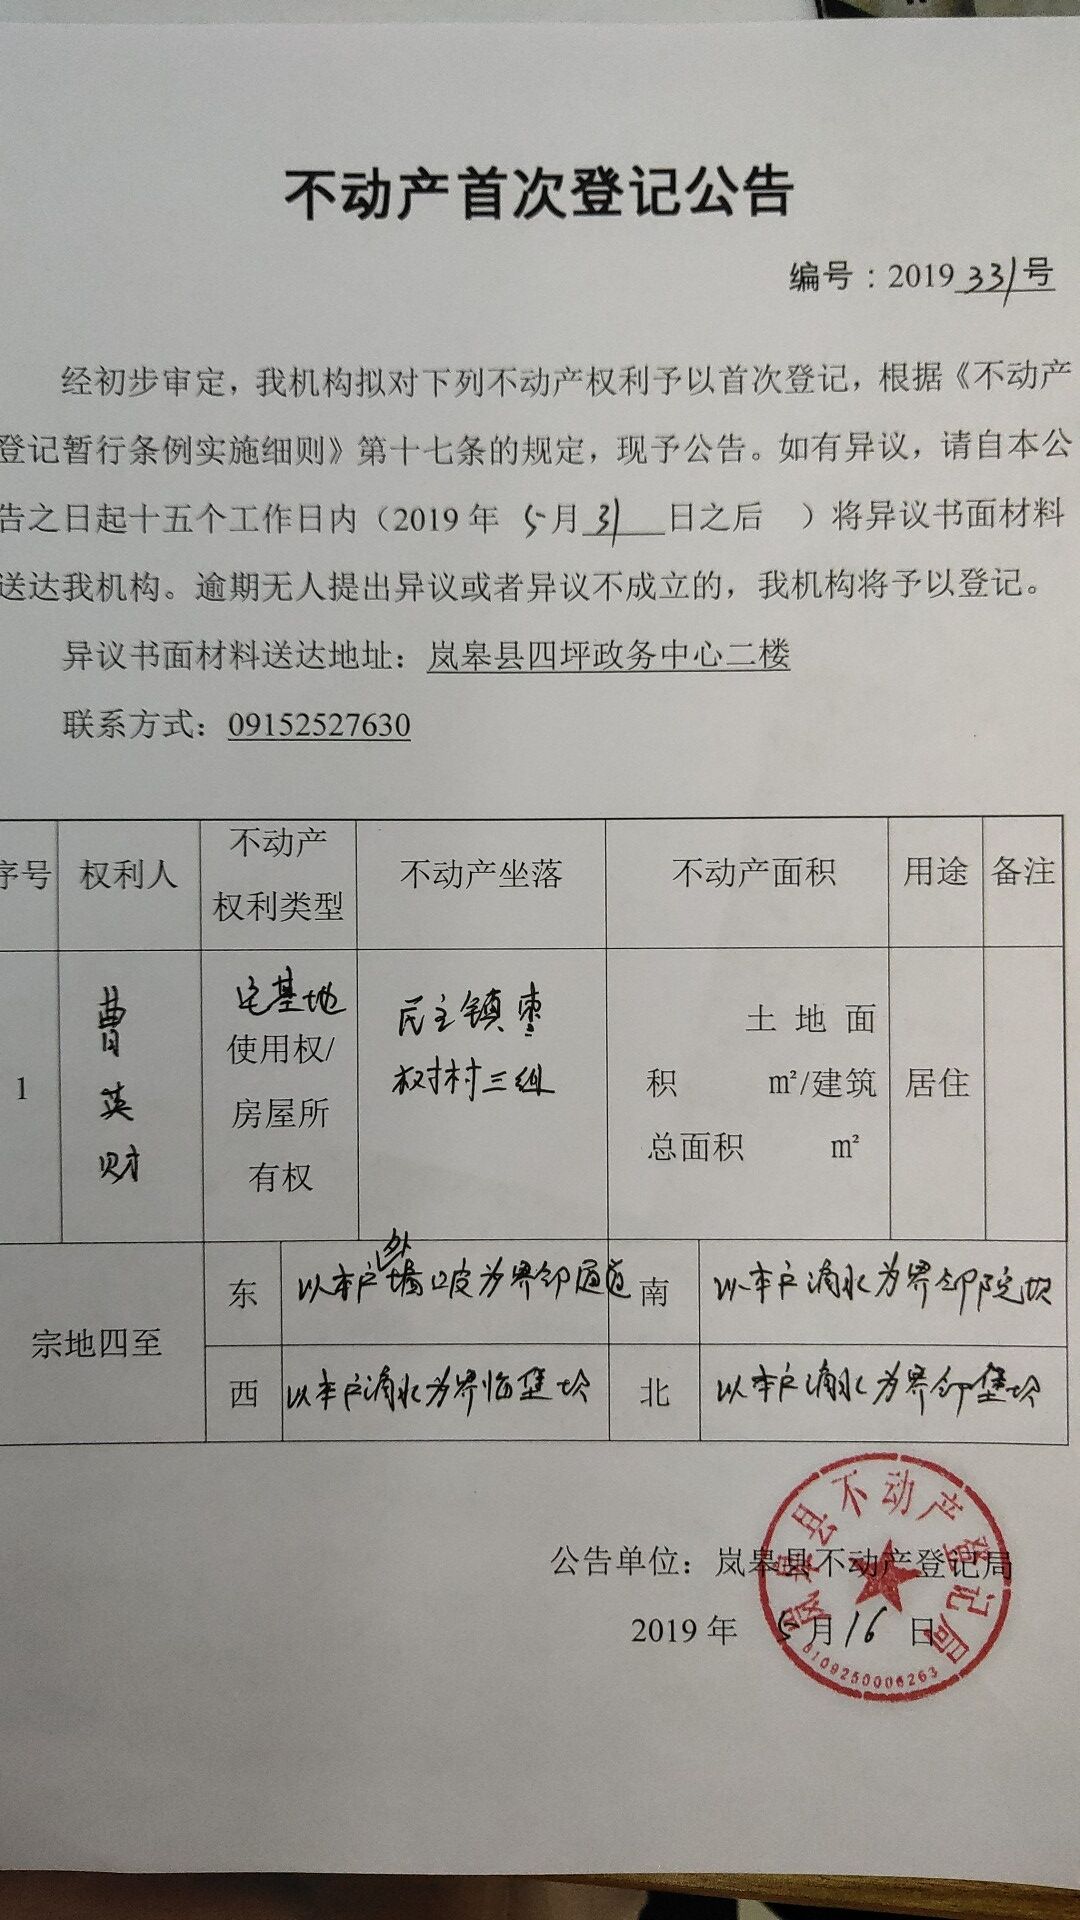 不动产首次登记公告
编号：2019331号
经初步审定，我机构拟对下列不动产权利予以首次登记，根据《不动产
登记暂行条例实施细则》第十七条的规定，现予公告。如有异议，请自本公
告之日起十五个工作日内（2019 年 5月31日之后 ）将异议书面材料
送达我机构。逾期无人提出异议或者异议不成立的，我机构将予以登记。
异议书面材料送达地址：岚皋县四坪政务中心二楼
联系方式：09152527630
序号 权利人 不动产 权利类型 不动产坐落 不动产面积 用途 备注
1 曹英财 宅基地 使用权/ 房屋所 有权 民主镇枣 树村三组 土地面 积 ㎡/建筑 总面积 ㎡ 居住
宗地四至
东 以本户外墙 为界邻通道 南 以本户滴水为界邻院坎
西 以本户滴水为界临 坎 北 以本户滴水为界邻 坎
公告单位：岚皋县不动产登记局
2019 年 5月16 日
岚皋县不动产登记局
6109250006263